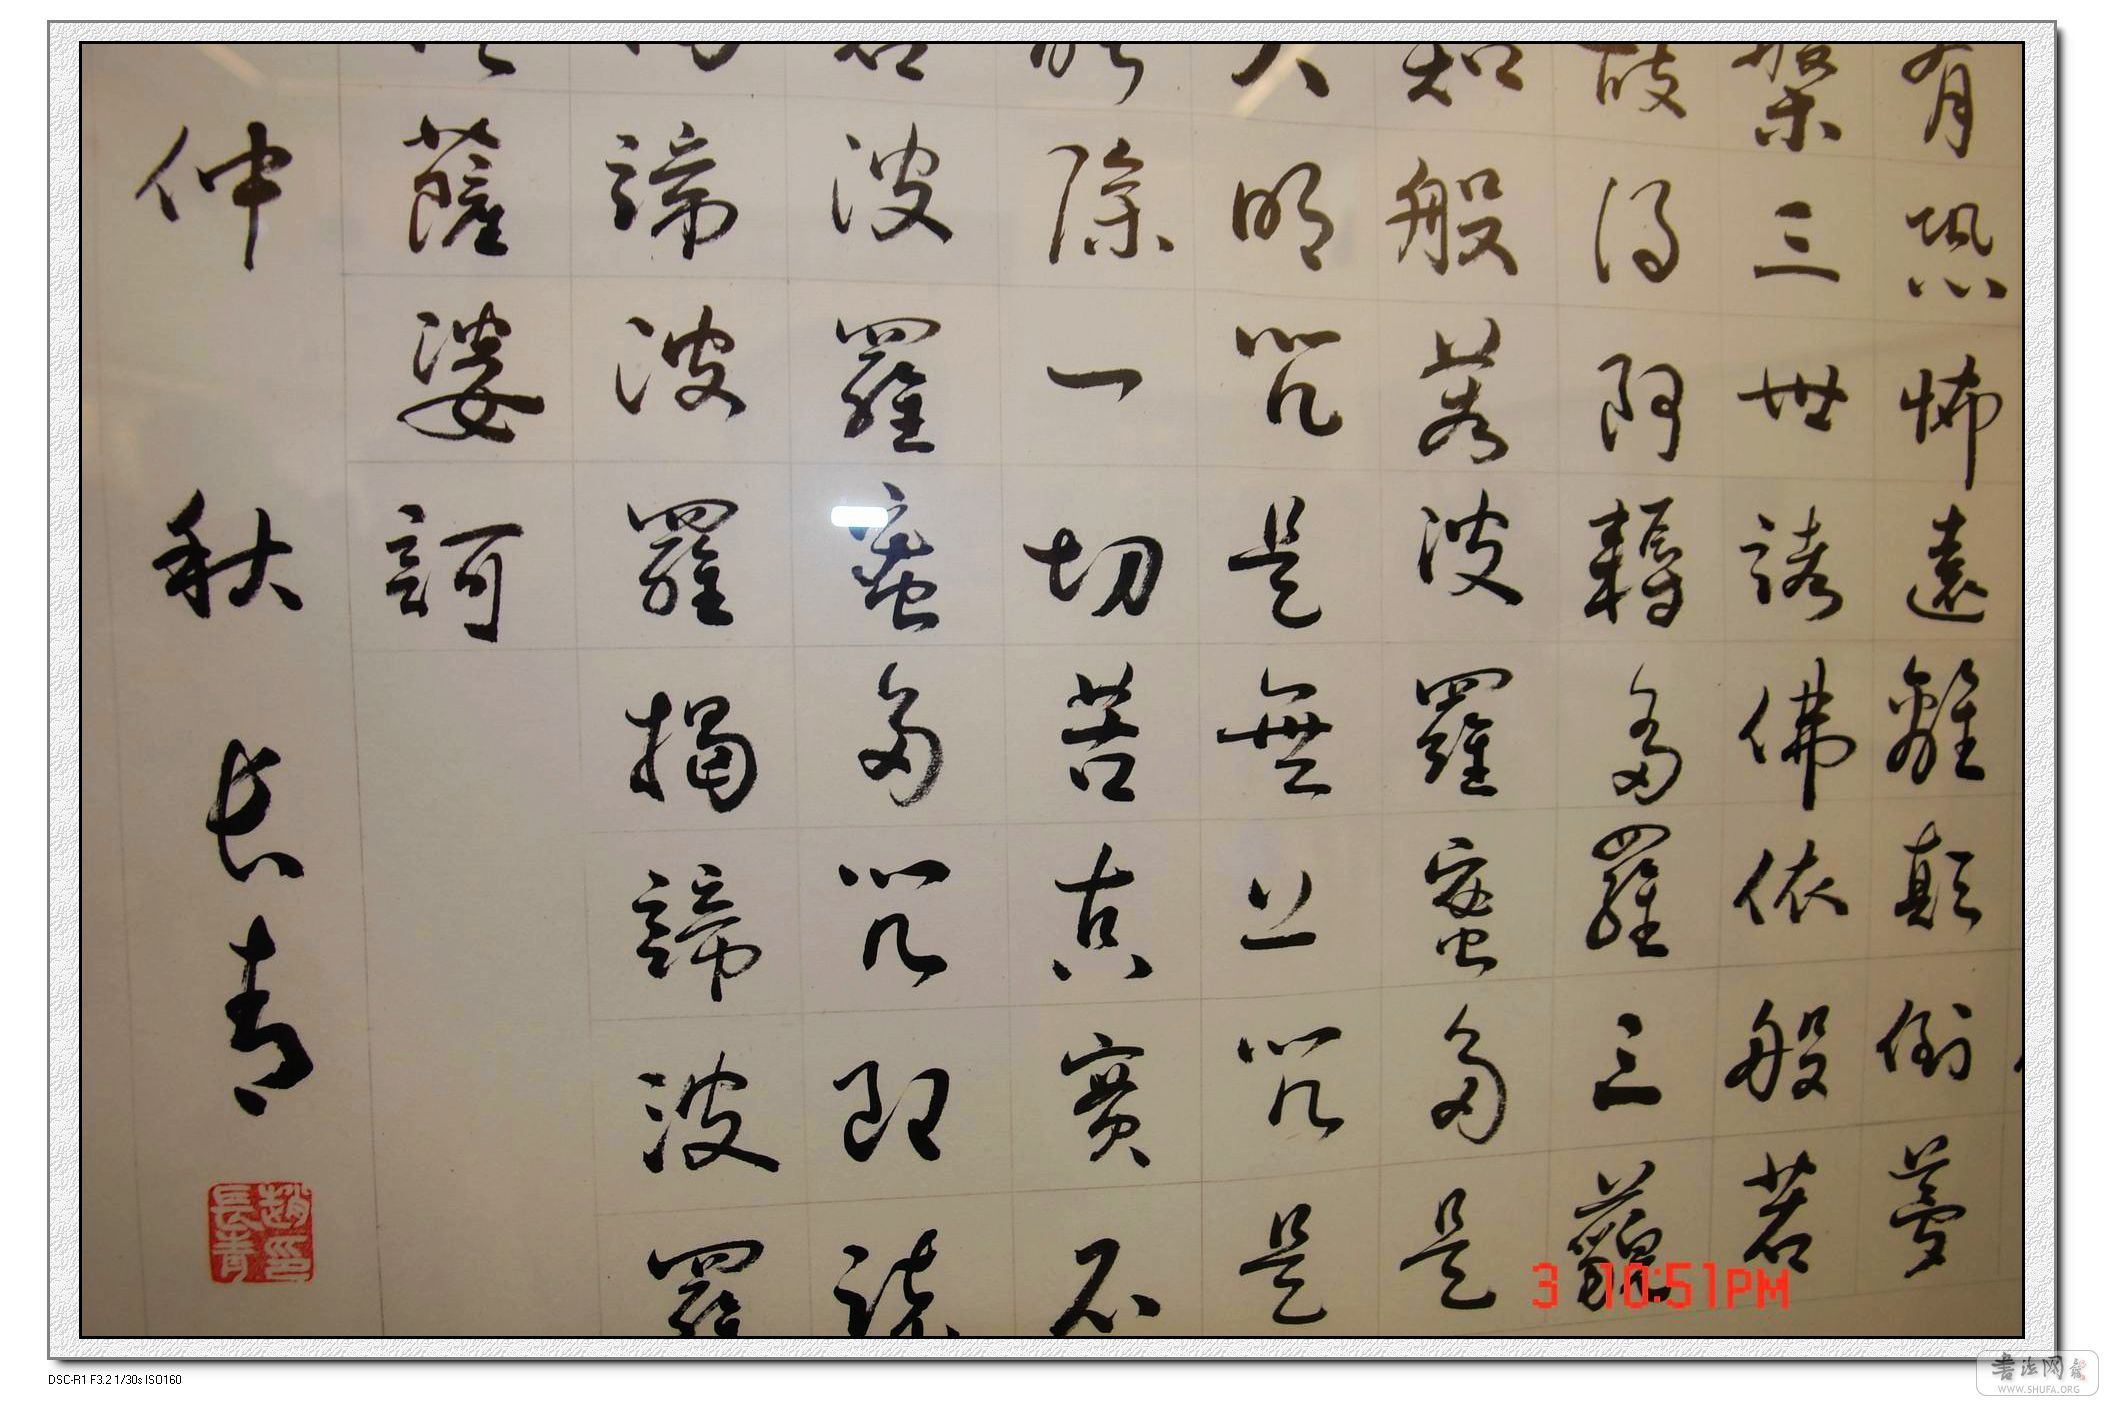 有恐怖遠離顛倒夢
槃三世諸佛依般若
故得阿耨多羅三藐
知般若波羅蜜多是
大明咒是無上咒是
能除一切苦真實不
若波羅蜜多咒即說
諦波羅揭諦波羅
薩婆訶
仲秋長青
趙印長青
3 10:51PM
DSC-R1 F3.2 1/30s ISO160
書法网
WWW.SHUFA.ORG